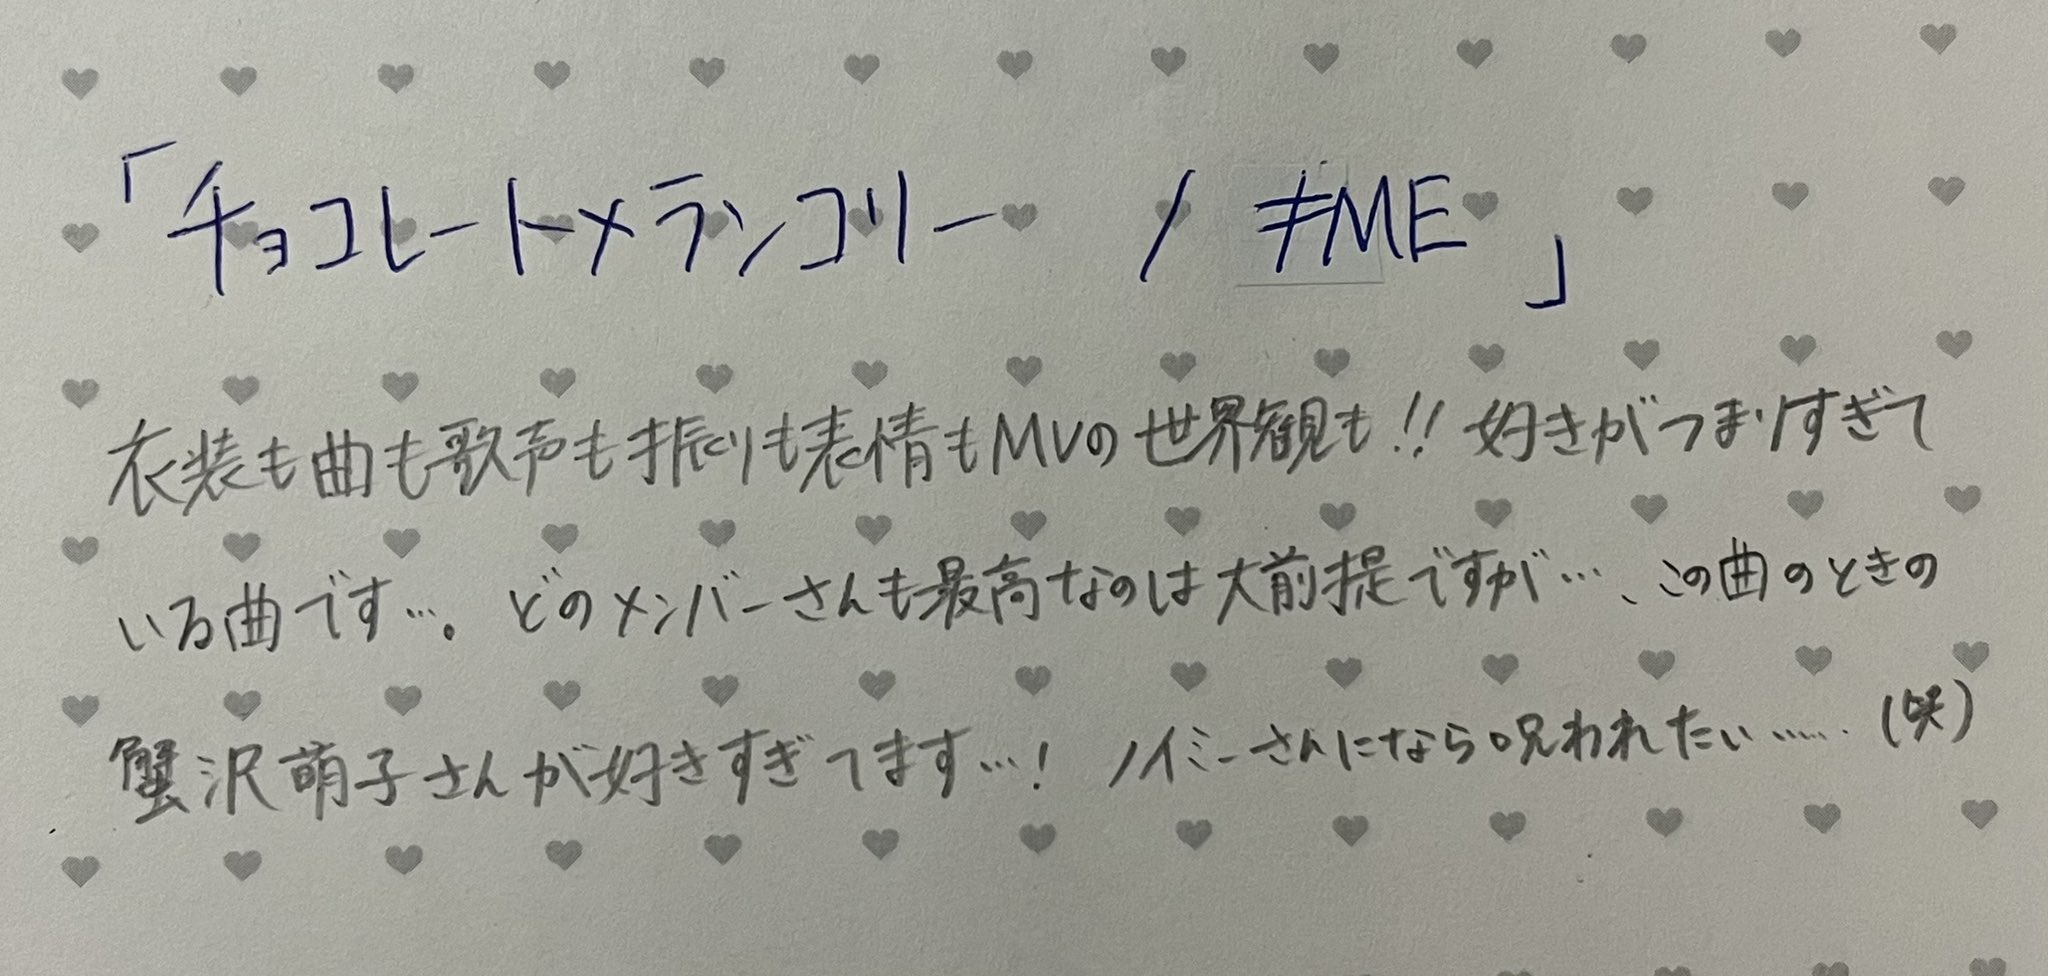 「チョコレートメランコリー / ≠ME」
衣装も曲も歌声も振りも表情もMVの世界観も!! 好きがつまりすぎて
いる曲です…。どのメンバーさんも最高なのは大前提ですが…、この曲のときの
蟹沢萌子さんが好きすぎてます…! ノイミーさんになら呪われたい……(笑)